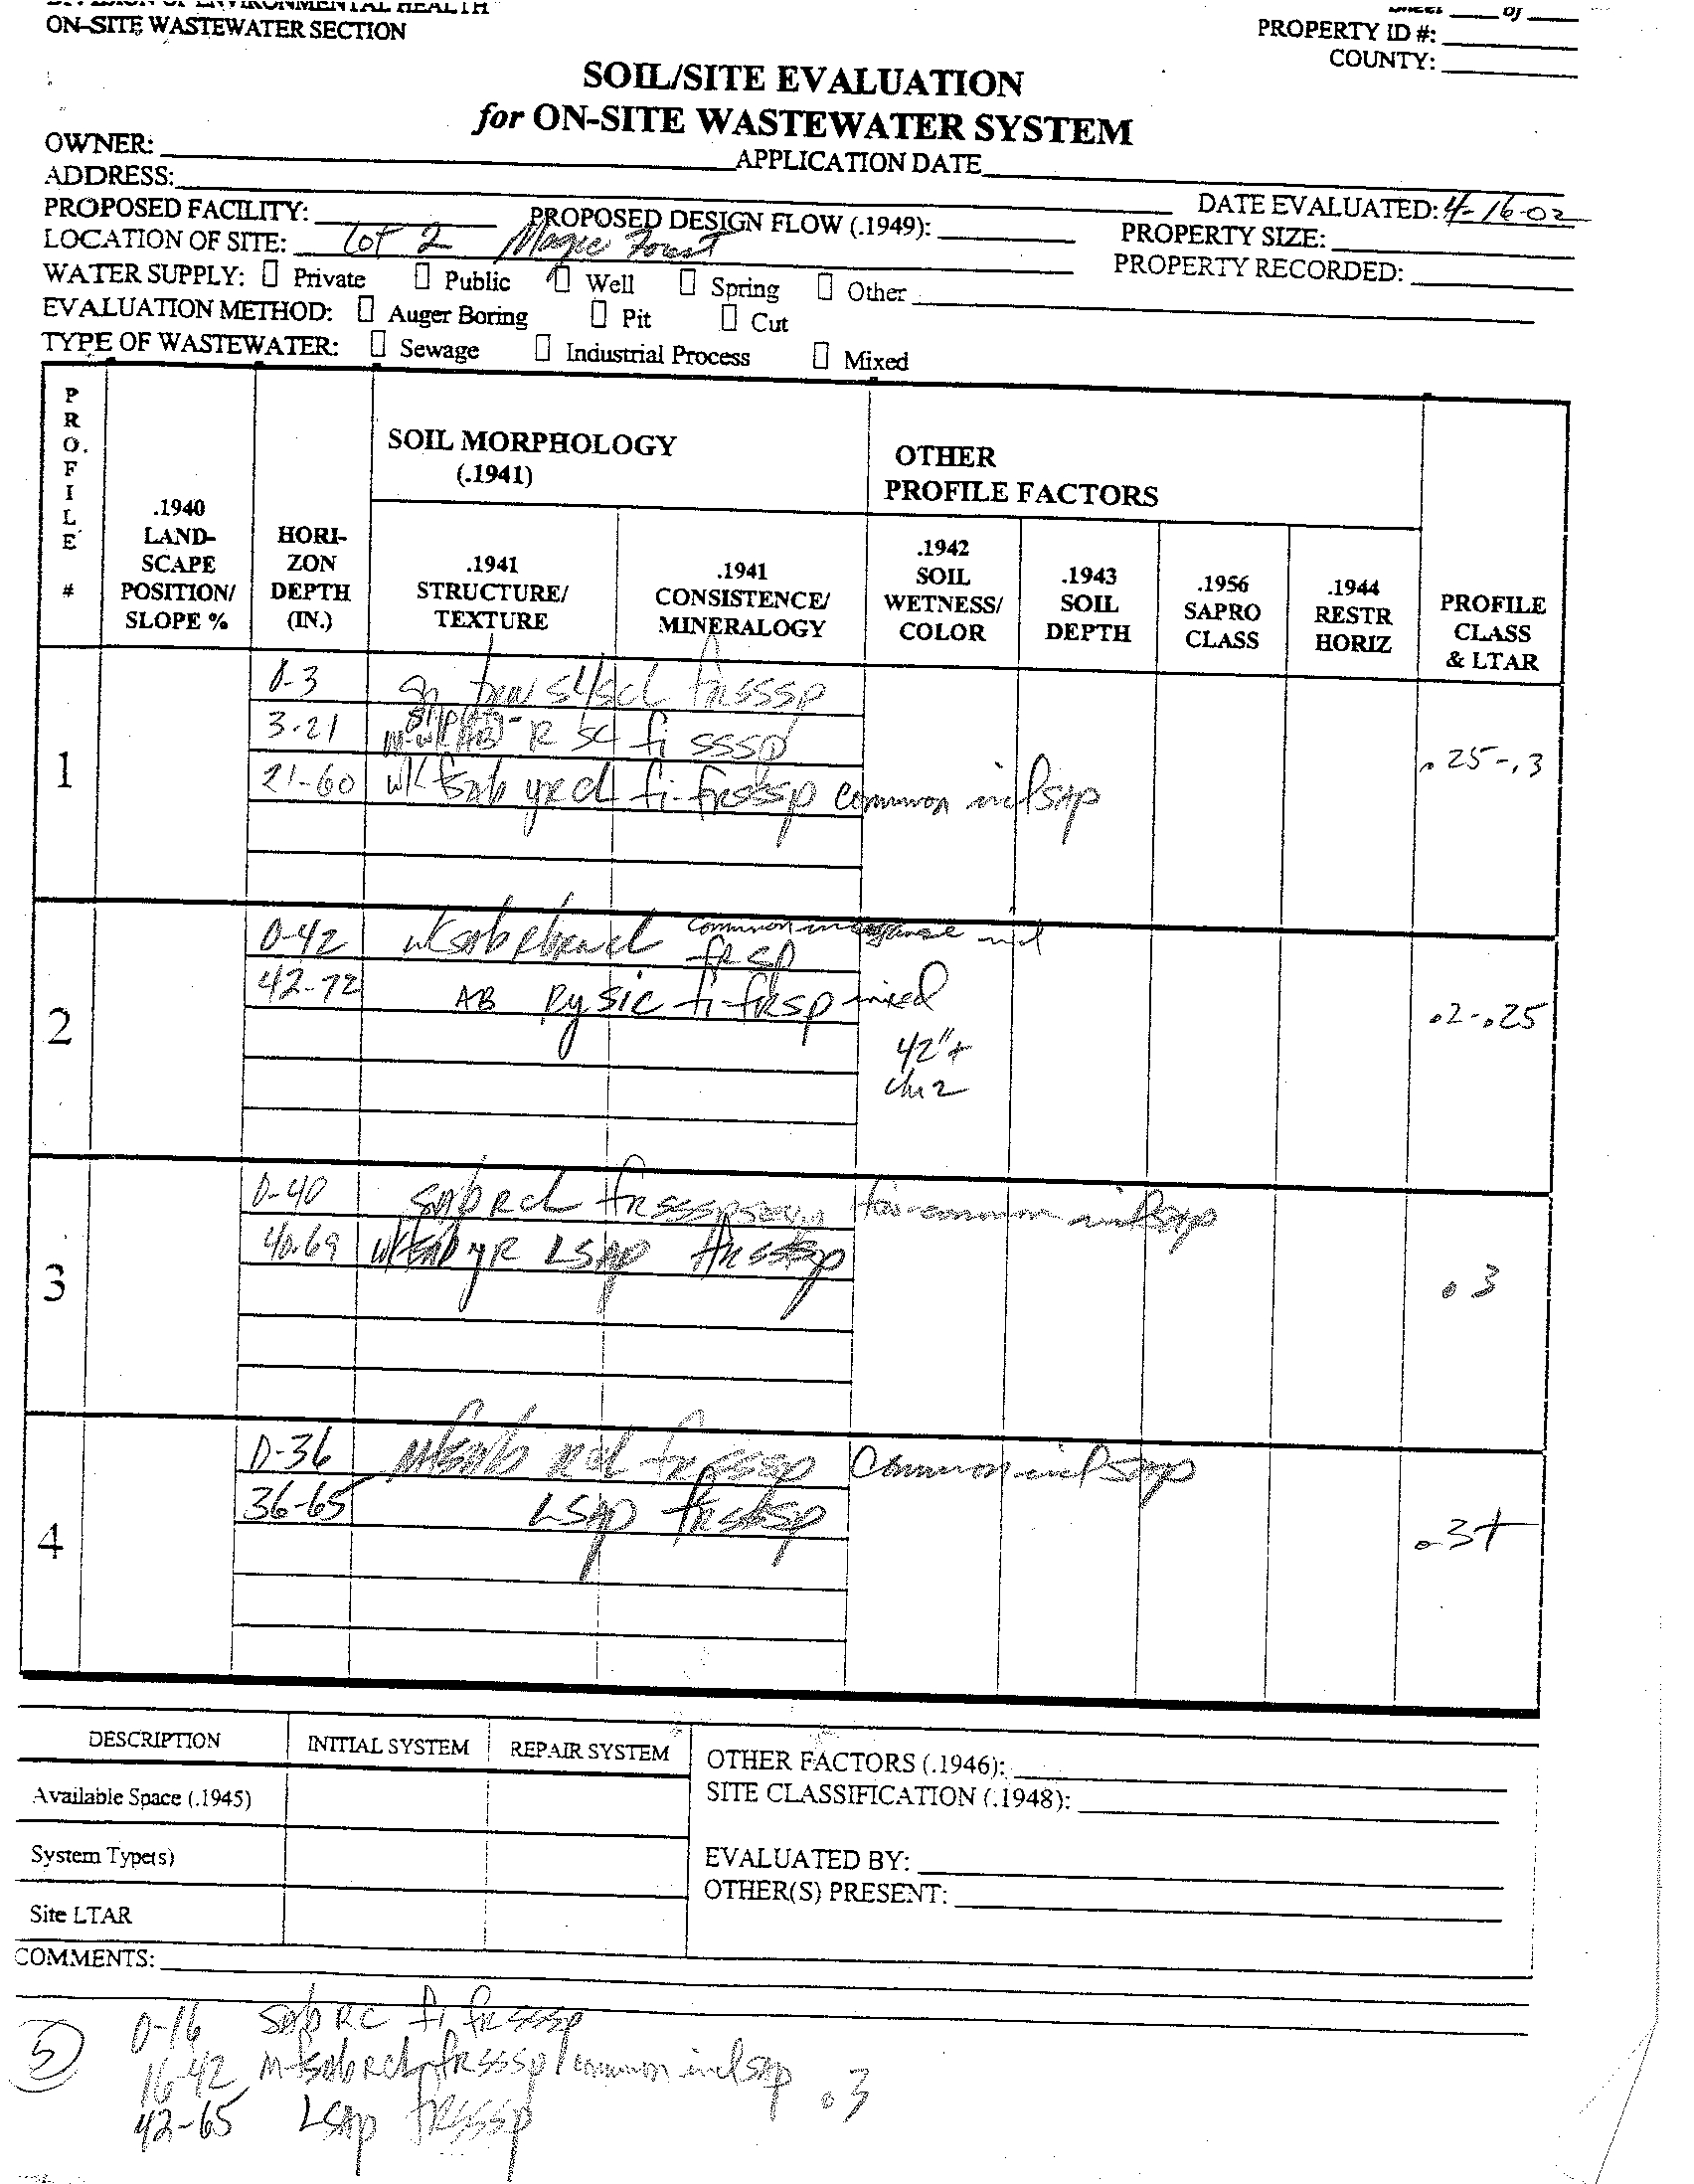 DIVISION OF ENVIRONMENTAL HEALTH
ON-SITE WASTEWATER SECTION
Sheet ___ of ___
PROPERTY ID #:
COUNTY:
SOIL/SITE EVALUATION
for ON-SITE WASTEWATER SYSTEM
OWNER:
APPLICATION DATE
ADDRESS:
DATE EVALUATED: 4-16-02
PROPOSED FACILITY:
PROPOSED DESIGN FLOW (.1949):
PROPERTY SIZE:
LOCATION OF SITE: Lot 2 Magic Forest
PROPERTY RECORDED:
WATER SUPPLY: Private Public Well Spring Other
EVALUATION METHOD: Auger Boring Pit Cut
TYPE OF WASTEWATER: Sewage Industrial Process Mixed
PROFILE #
.1940 LAND-SCAPE POSITION/ SLOPE %
HORI-ZON DEPTH (IN.)
SOIL MORPHOLOGY
(.1941)
.1941 STRUCTURE/ TEXTURE
.1941 CONSISTENCE/ MINERALOGY
OTHER
PROFILE FACTORS
.1942 SOIL WETNESS/ COLOR
.1943 SOIL DEPTH
.1956 SAPRO CLASS
.1944 RESTR HORIZ
PROFILE CLASS & LTAR
1
0-3 frsssp
3-21 R fi sssp
21-60 wkfsab yrcl fi-frsssp common inclsap
.25-.3
2
0-42 common frsp
42-72 AB Rysic fi-frsp mixed
42"+
chr 2
.2-.25
3
0-40 sabRcl frsssp few-common inclsap
40-69 wkfsab yR LSAP frsssp
.3
4
0-36 Rcl frsssp common inclsap
36-65 LSAP frsssp
.3+
DESCRIPTION INITIAL SYSTEM REPAIR SYSTEM
Available Space (.1945)
System Type(s)
Site LTAR
OTHER FACTORS (.1946):
SITE CLASSIFICATION (.1948):
EVALUATED BY:
OTHER(S) PRESENT:
COMMENTS:
5
0-16 sab RC fi frsssp
16-42 m-fsab Rcl frsssp common inclsap .3
42-65 LSAP frsssp